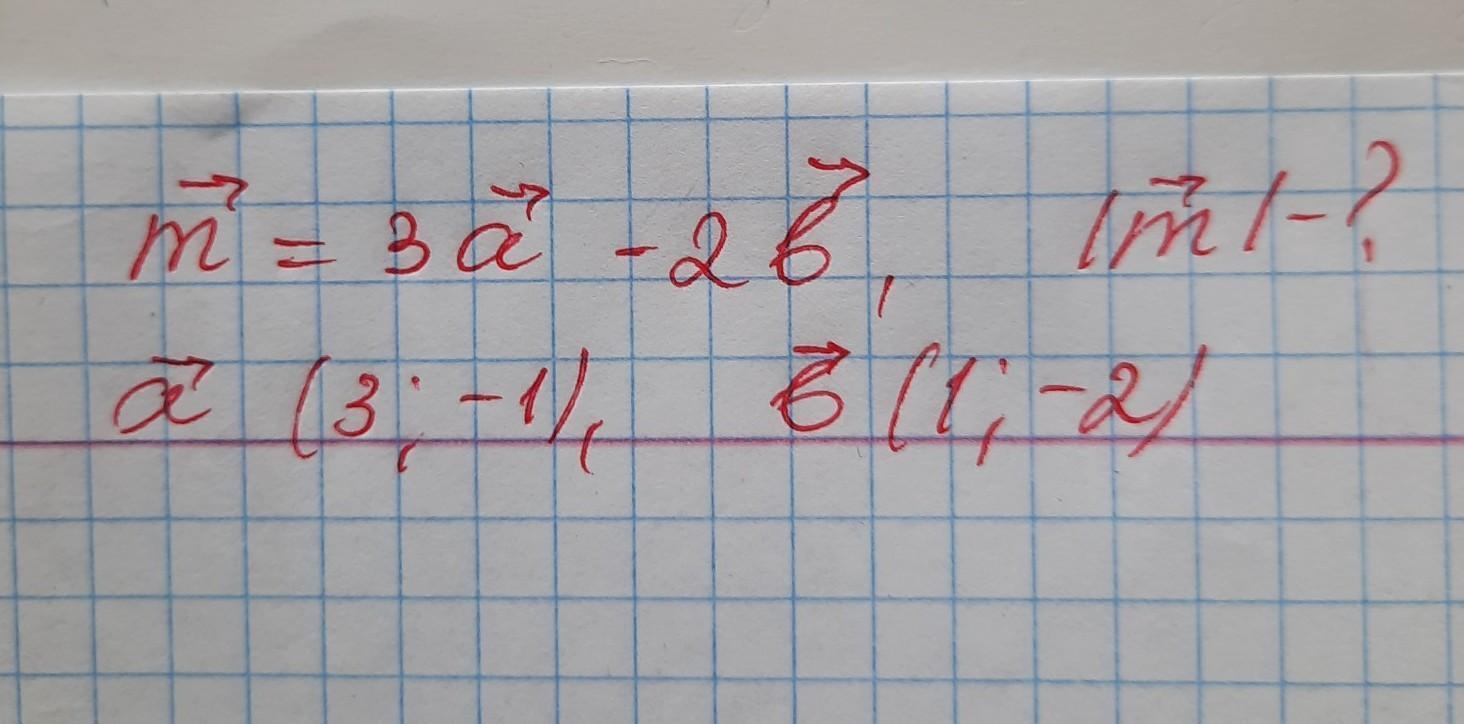 m⃗ = 3a⃗ - 2b⃗, |m⃗| - ?
a⃗ (3; -1), b⃗ (1; -2)